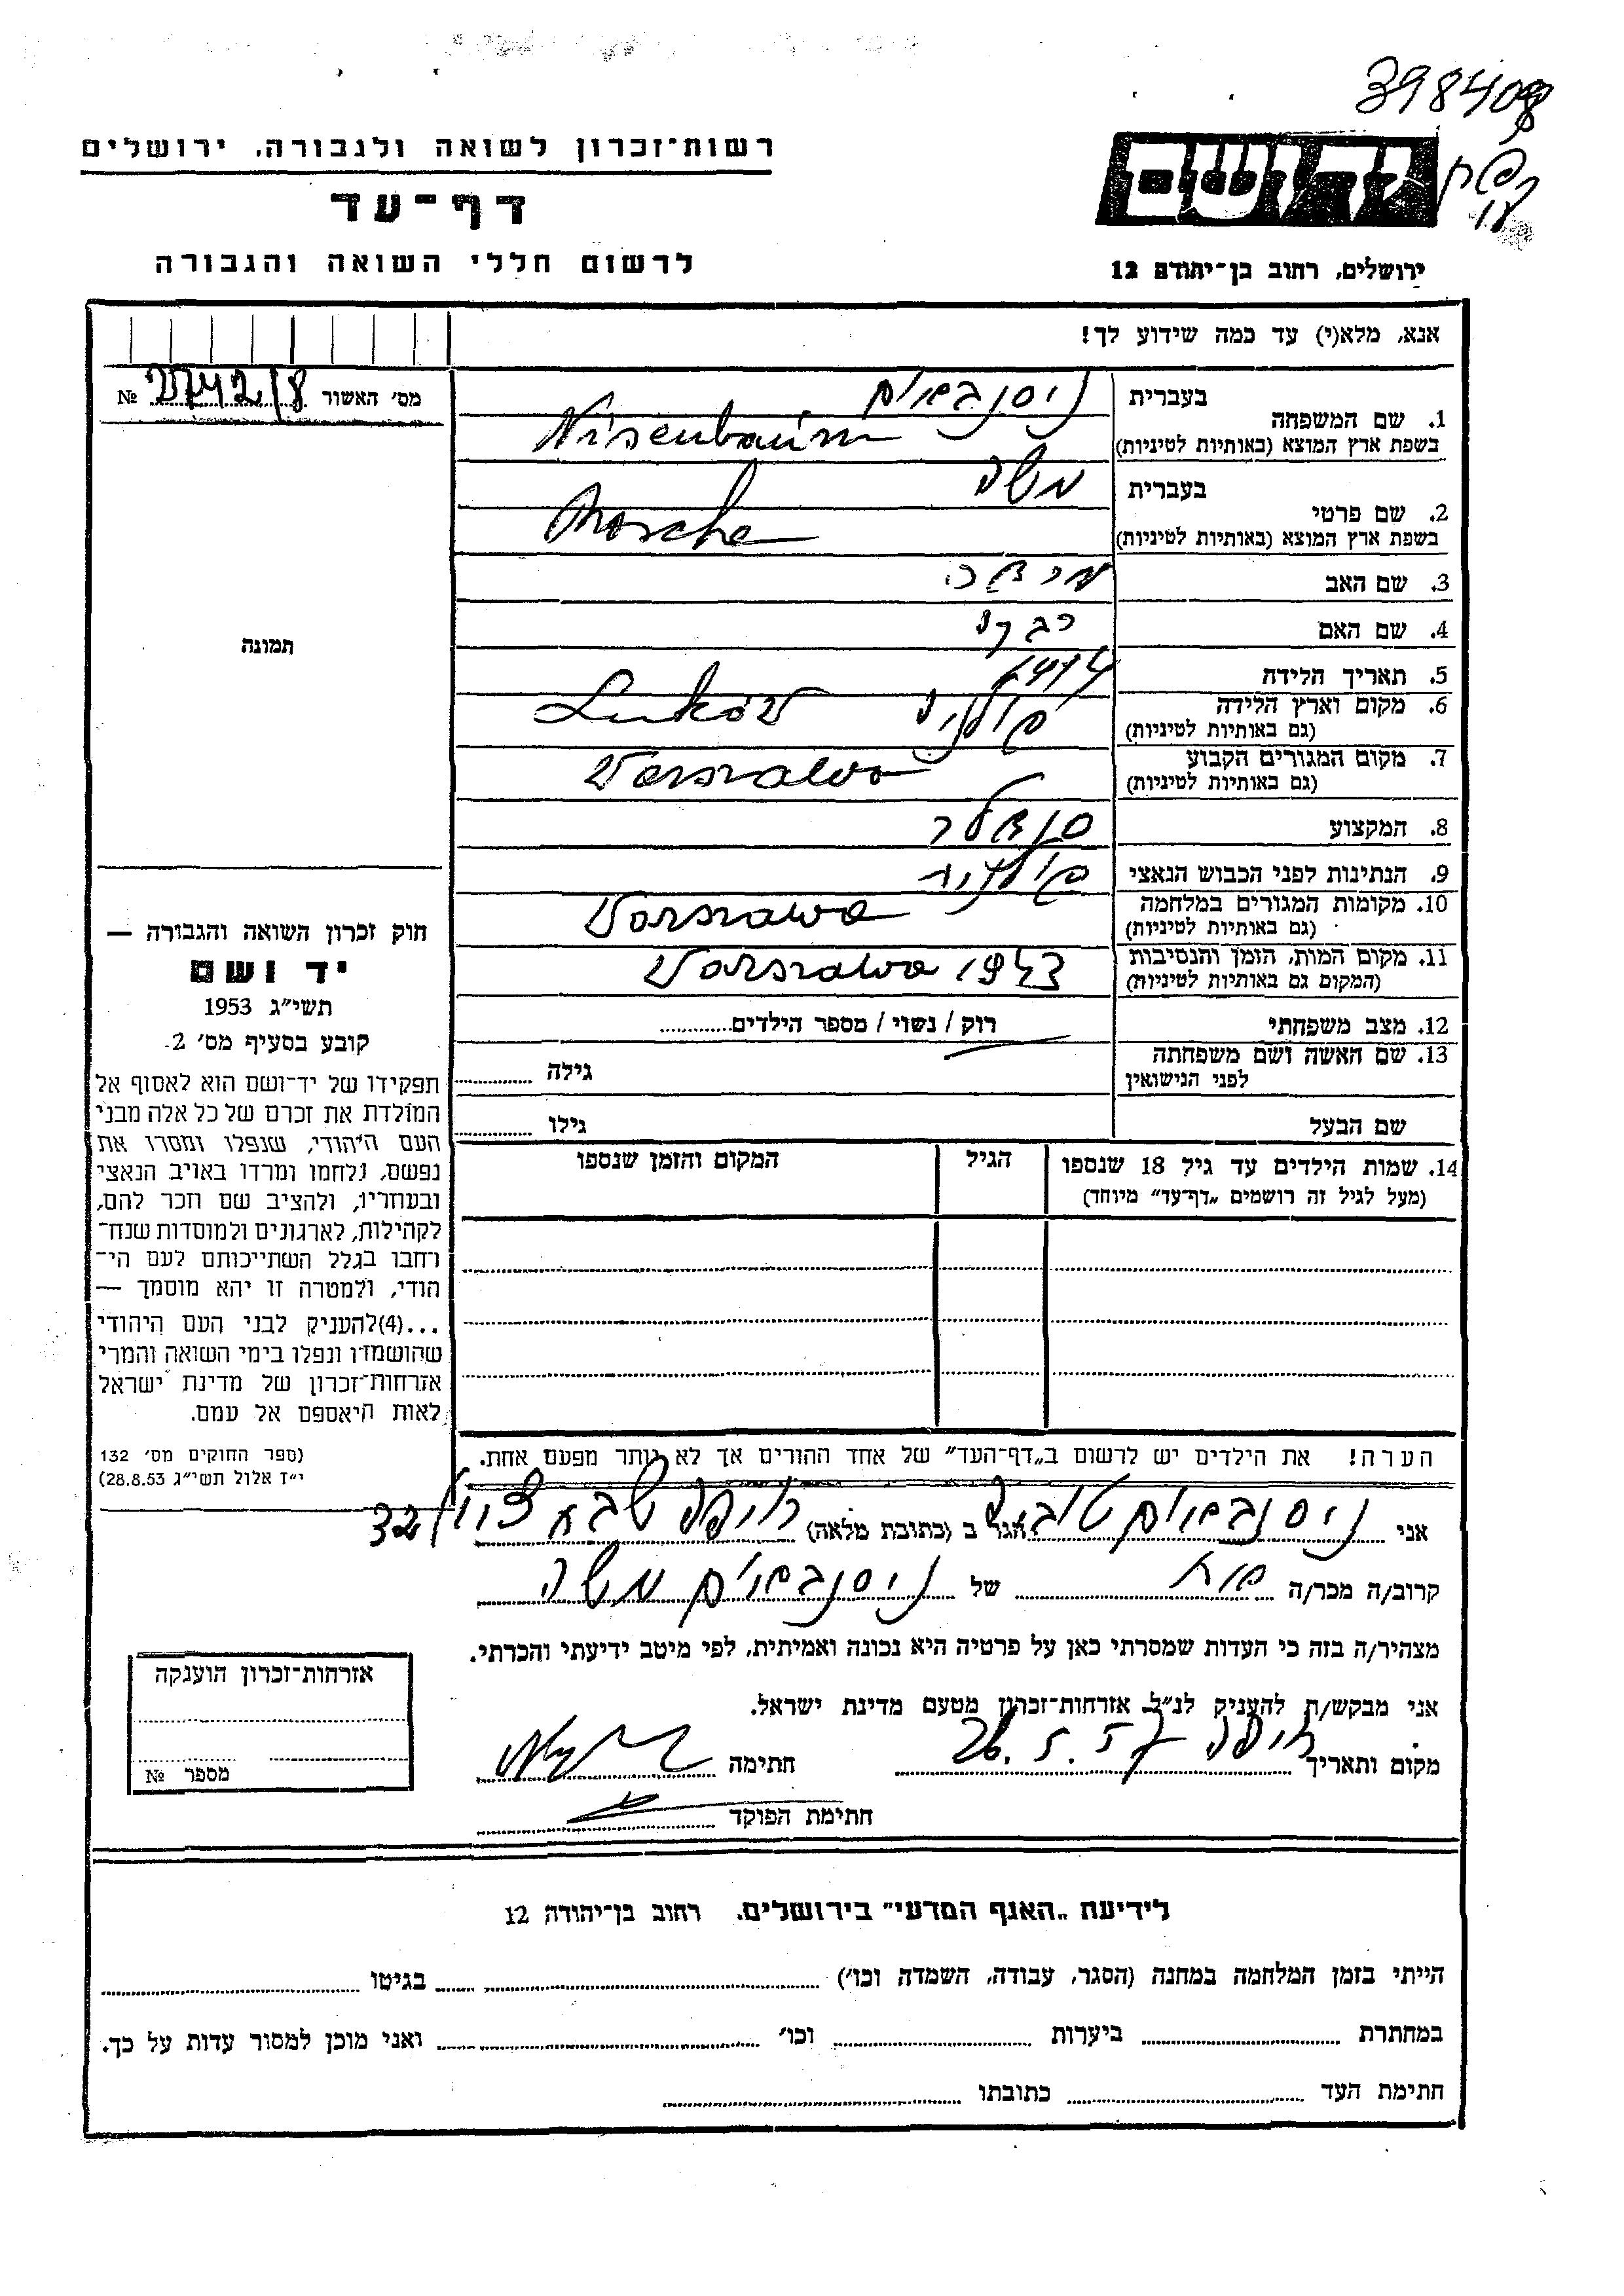 398408
רשות־זכרון לשואה ולגבורה, ירושלים
דף־עד
לרשום חללי השואה והגבורה
יד ושם
ירושלים, רחוב בן־יהודה 12
אנא, מלא(י) עד כמה שידוע לך!
מס׳ האשור №
1. שם המשפחה בעברית ניסנבוים
בשפת ארץ המוצא (באותיות לטיניות) Nisenbaum
2. שם פרטי בעברית משה
בשפת ארץ המוצא (באותיות לטיניות) Mosche
3. שם האב
4. שם האם רבקה
5. תאריך הלידה
6. מקום וארץ הלידה פולניה Luków
(גם באותיות לטיניות)
7. מקום המגורים הקבוע Varszawa
(גם באותיות לטיניות)
8. המקצוע סנדלר
9. הנתינות לפני הכבוש הנאצי פולנית
10. מקומות המגורים במלחמה Varszawa
(גם באותיות לטיניות)
11. מקום המות, הזמן והנסיבות Varszawa 1943
(המקום גם באותיות לטיניות)
12. מצב משפחתי רוק / נשוי / מספר הילדים
13. שם האשה ושם משפחתה
לפני הנישואין גילה
שם הבעל גילו
14. שמות הילדים עד גיל 18 שנספו הגיל המקום והזמן שנספו
(מעל לגיל זה רושמים „דף־עד” מיוחד)
תמונה
חוק זכרון השואה והגבורה —
יד ושם
תשי״ג 1953
קובע בסעיף מס׳ 2
תפקידו של יד־ושם הוא לאסוף אל
המולדת את זכרם של כל אלה מבני
העם היהודי, שנפלו ומסרו את
נפשם, נלחמו ומרדו באויב הנאצי
ובעוזריו, ולהציב שם וזכר להם,
לקהילות, לארגונים ולמוסדות שנח־
רחבו בגלל השתייכותם לעם הי־
הודי, ולמטרה זו יהא מוסמך —
...(4) להעניק לבני העם היהודי
שהושמדו ונפלו בימי השואה והמרי
אזרחות־זכרון של מדינת ישראל
לאות היאספם אל עמם.
(ספר החוקים מס׳ 132
י״ז אלול תשי״ג 28.8.53)
הערה! את הילדים יש לרשום ב„דף־העד” של אחד ההורים אך לא יותר מפעם אחת.
אני ניסנבוים טובה הגר ב (כתובת מלאה) חיפה 32
קרוב/ה מכר/ה של ניסנבוים משה
מצהיר/ה בזה כי העדות שמסרתי כאן על פרטיה היא נכונה ואמיתית, לפי מיטב ידיעתי והכרתי.
אני מבקש/ת להעניק לנ״ל אזרחות־זכרון מטעם מדינת ישראל.
מקום ותאריך חיפה 26.5.57 חתימה
חתימת הפוקד
אזרחות־זכרון הוענקה
מספר №
לידיעת „האגף המדעי” בירושלים, רחוב בן־יהודה 12
הייתי בזמן המלחמה במחנה (הסגר, עבודה, השמדה וכו׳) בגיטו
במחתרת ביערות וכו׳ ואני מוכן למסור עדות על כך.
חתימת העד כתובתו